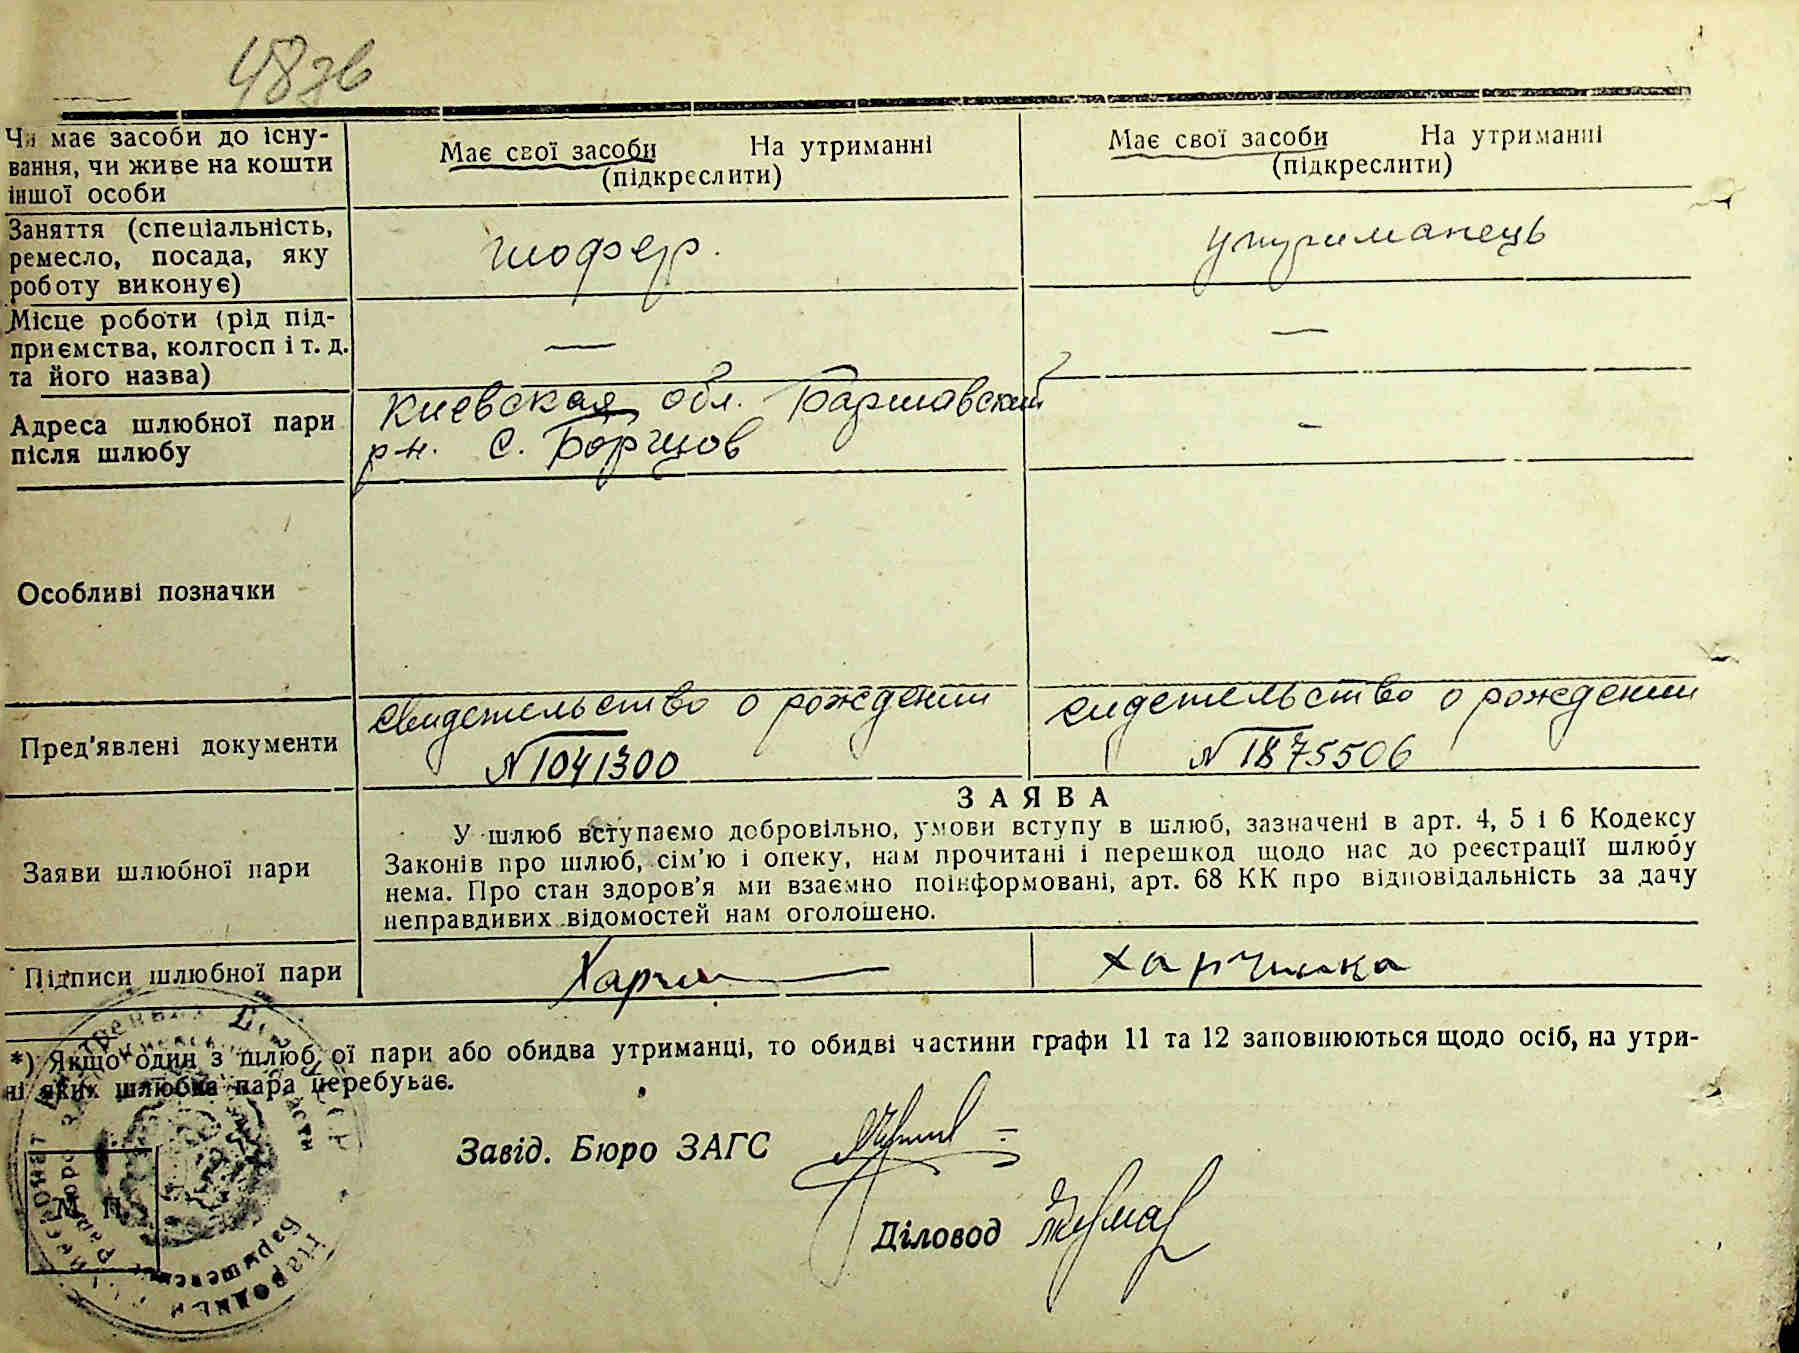 48зв
Чи має засоби до існу-
вання, чи живе на кошти
іншої особи
Має свої засоби На утриманні
(підкреслити)
Має свої засоби На утриманні
(підкреслити)
Заняття (спеціальність,
ремесло, посада, яку
роботу виконує)
шофер.
утриманець
Місце роботи (рід під-
приємства, колгосп і т. д.
та його назва)
—
—
Адреса шлюбної пари
після шлюбу
Киевская обл. Баршавский
р-н. С. Борщов
-
Особливі позначки
Пред'явлені документи
свидетельство о рождении
№ 1041300
сидетельство о рождении
№ 1875506
Заяви шлюбної пари
ЗАЯВА
У шлюб вступаємо добровільно, умови вступу в шлюб, зазначені в арт. 4, 5 і 6 Кодексу
Законів про шлюб, сім'ю і опеку, нам прочитані і перешкод щодо нас до реєстрації шлюбу
нема. Про стан здоров'я ми взаємно поінформовані, арт. 68 КК про відповідальність за дачу
неправдивих відомостей нам оголошено.
Підписи шлюбної пари
Харчен
Харченка
*) Якщо один з шлюбної пари або обидва утриманці, то обидві частини графи 11 та 12 заповнюються щодо осіб, на утри-
ні яких шлюбна пара перебуває.
Завід. Бюро ЗАГС
Діловод
М П.
Народный
Барышевский